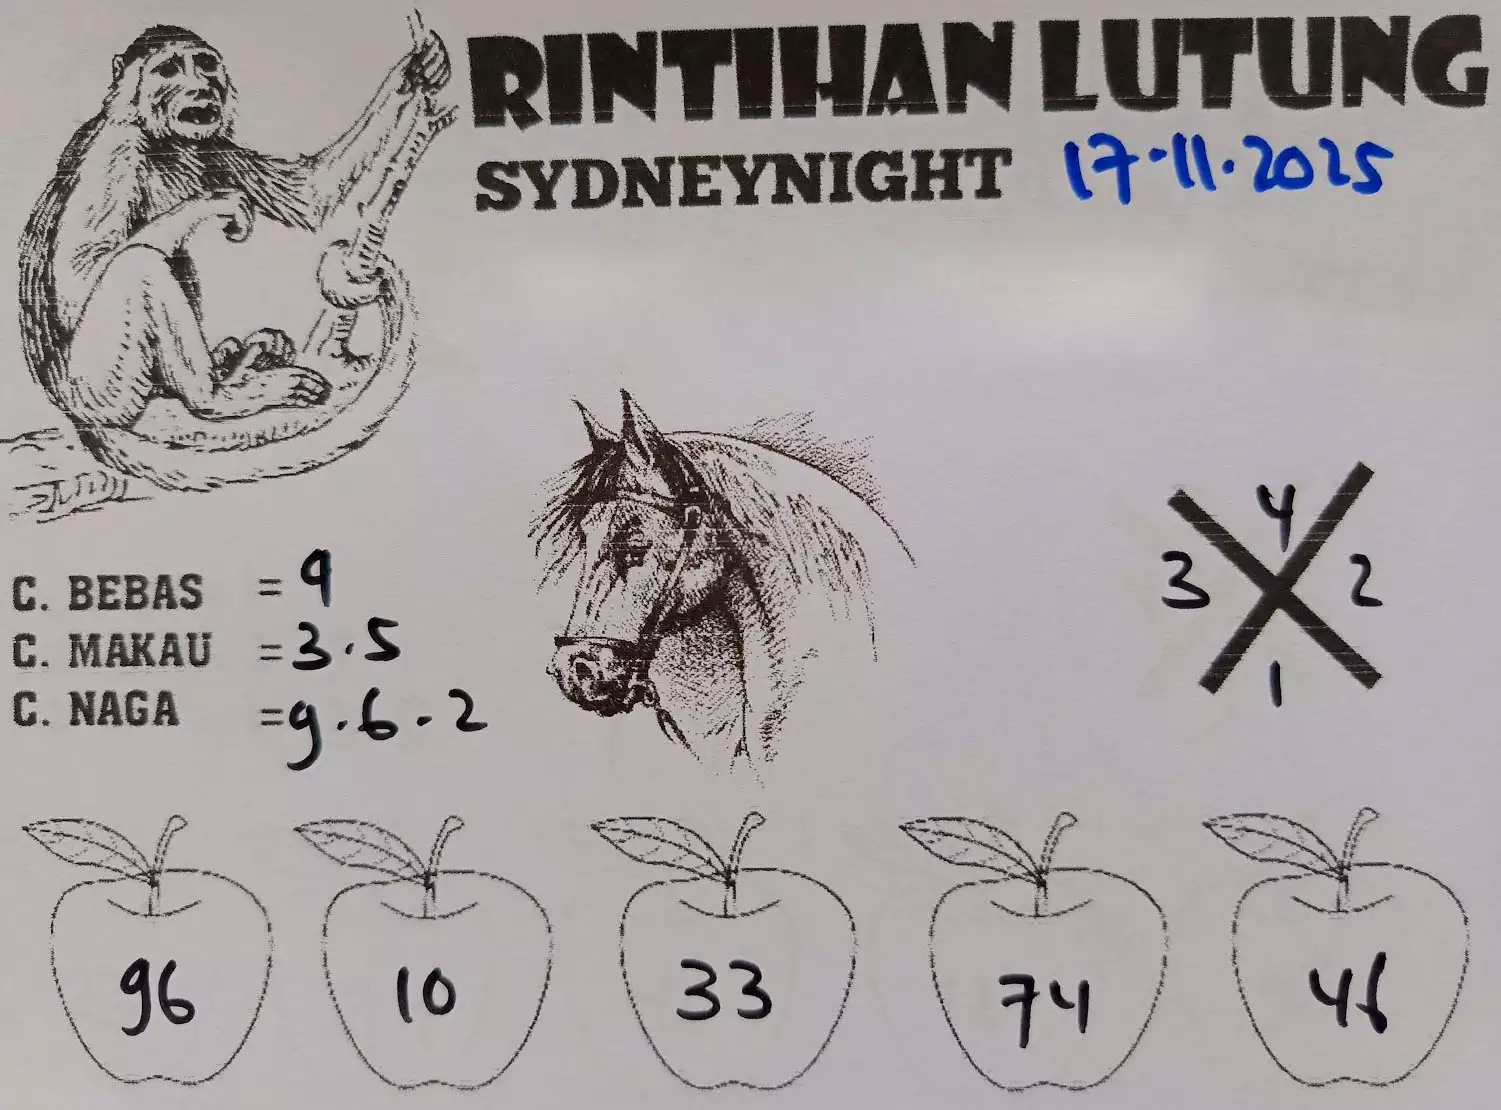 RINTIHAN LUTUNG
SYDNEYNIGHT 17-11-2025
4
3 2
1
C. BEBAS = 9
C. MAKAU = 3.5
C. NAGA = 9.6-2
96 10 33 74 46